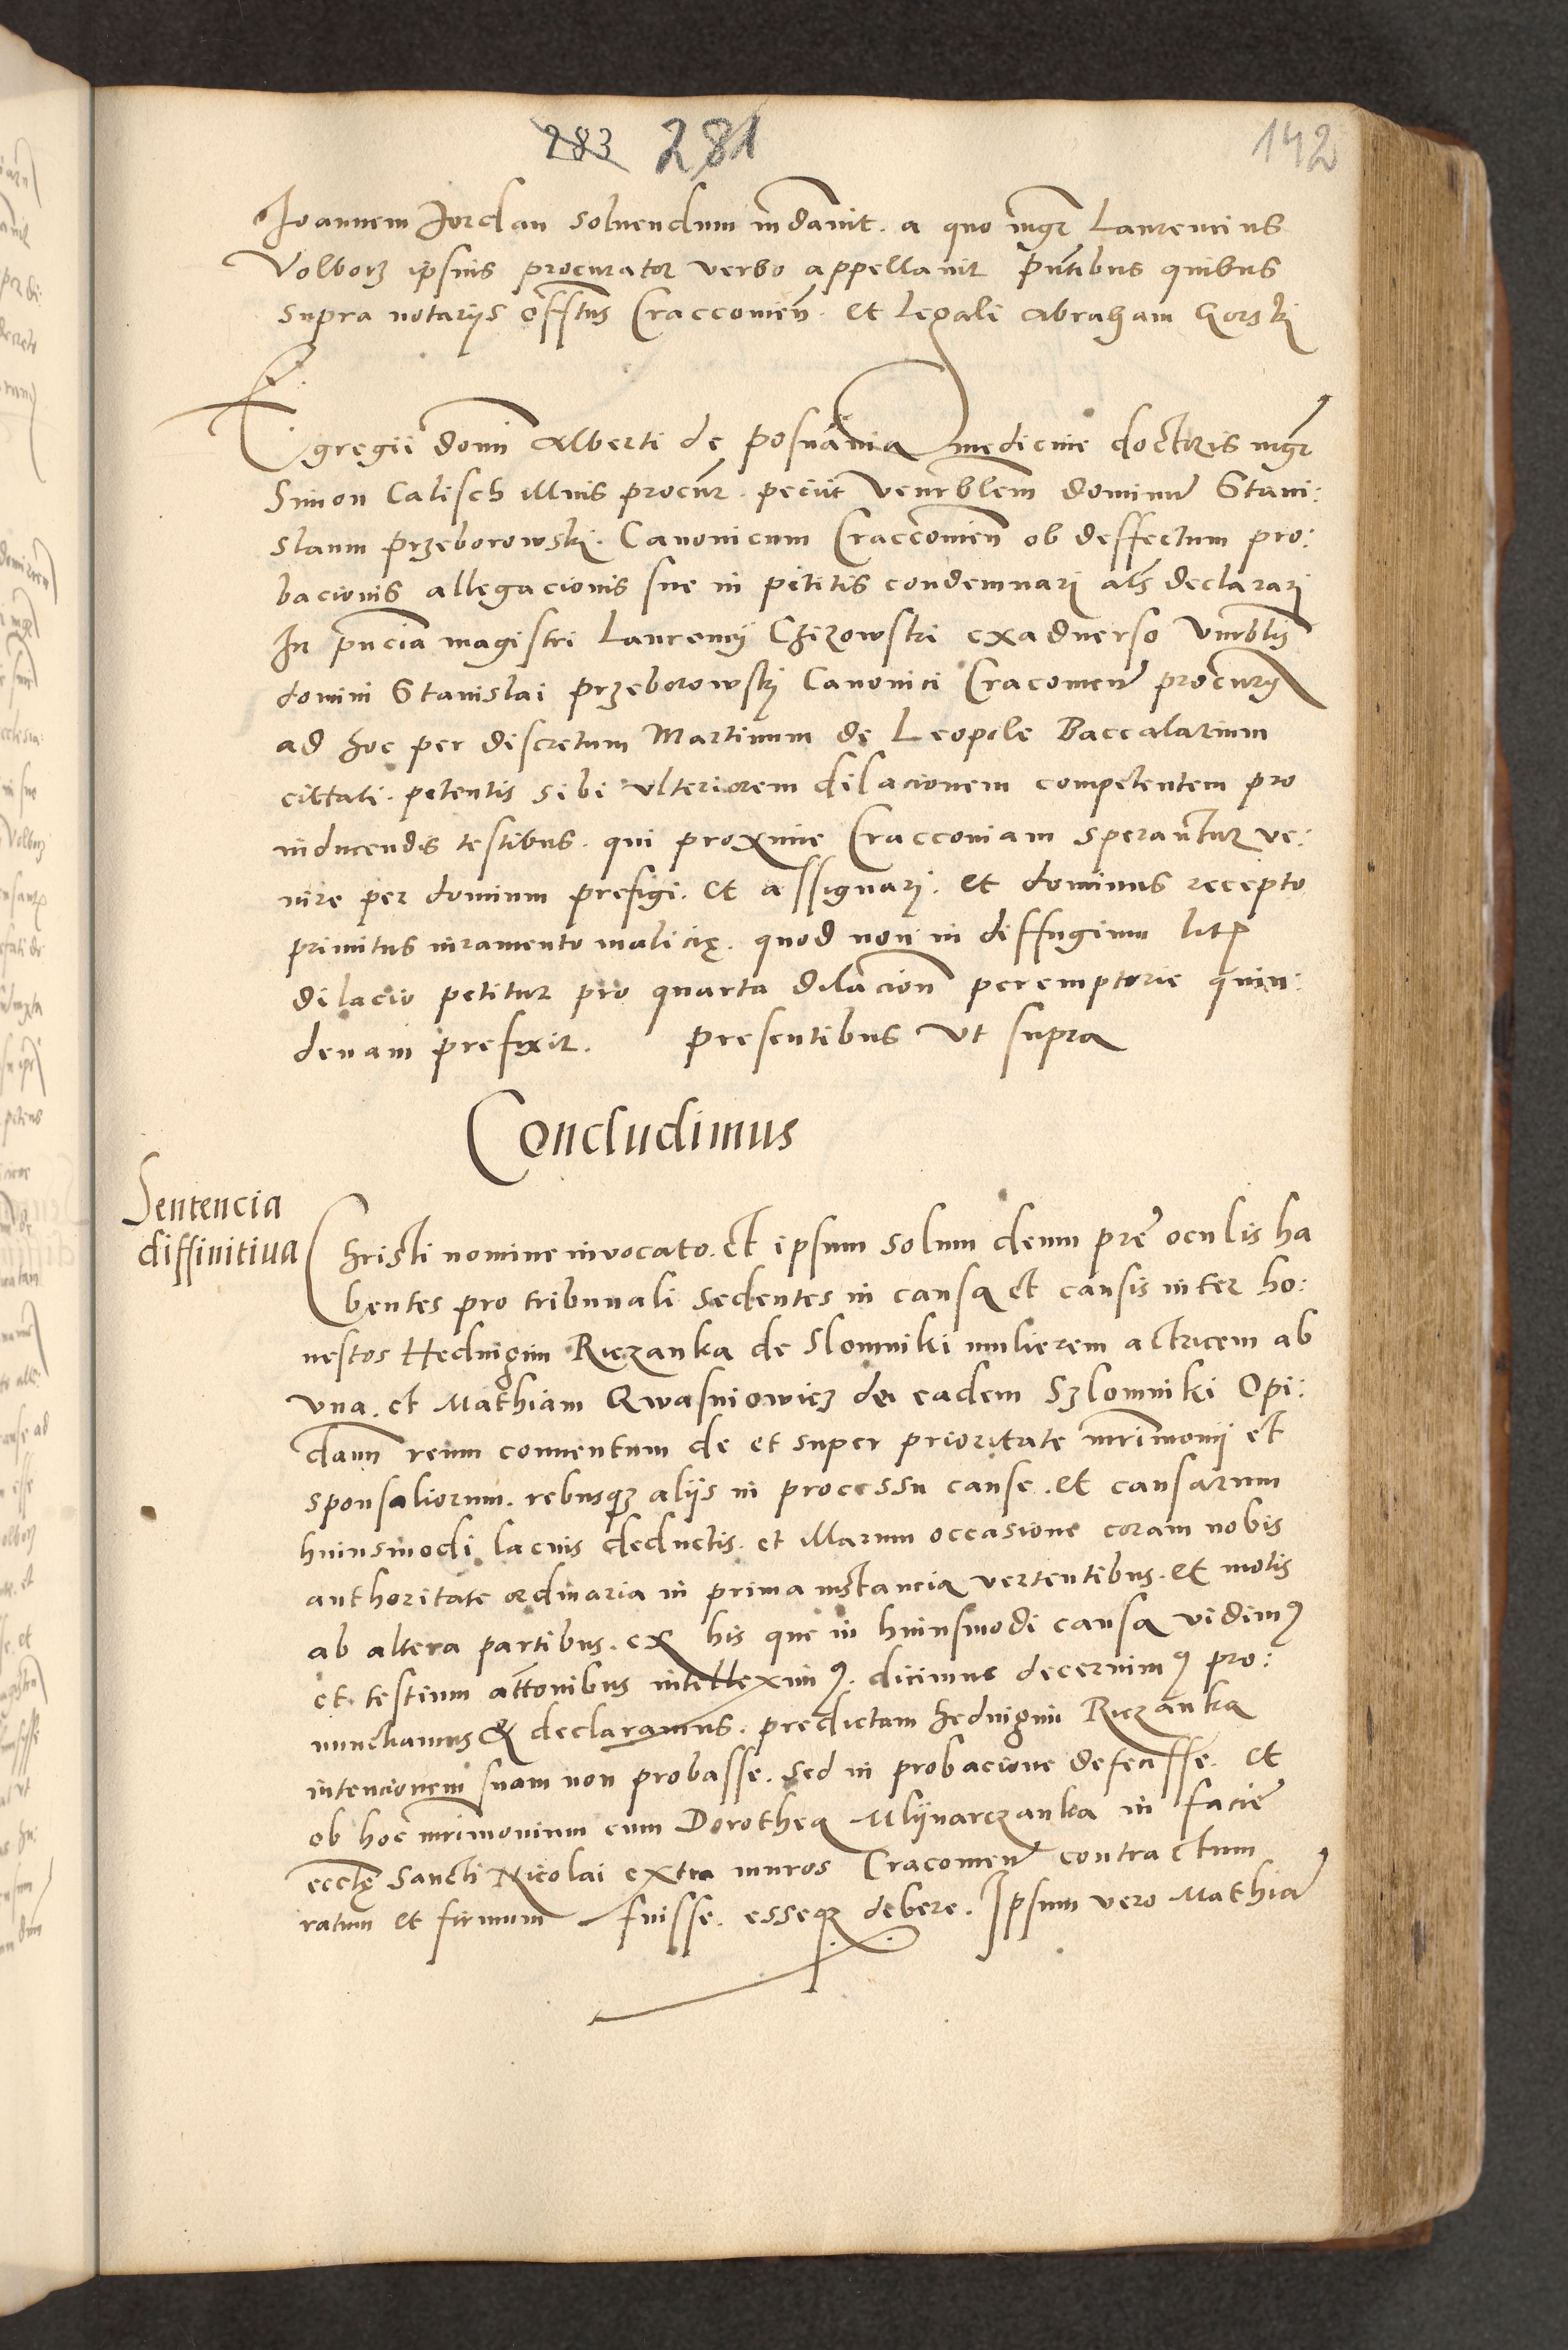 283 281
142
Joannem Jordan soluendum mdauit. a quo mgr Laurencius
Volborz ipsius procurator verbo appellauit pntibus quibus
supra notariis offtus Craccouien. et legali Abraham Gorski
Egregii domi Alberti de Posnania medicine doctoris mgr
Simon Calisch illius procur. peciit venerblem dominu Stani:
slaum Przeborowski. Canonicum Craccouien ob deffectum pro:
bacionis allegacionis sue in petitis condemnari als declarari
In pncia magistri Laurencij Czizowski exaduerso vnrblis
domini Stanislai Przeborowskj Canonici Cracouien procuris
ad hoc per discretum Martinum de Leopole Baccalarium
cittati. petentis sibi vlteriorem dilacionem competentem pro
inducendis testibus. qui proxime Cracconiam sperantur ve:
nire per dominum prefigi. et assignari. et dominus recepto
primitus iuramento malicię. quod non in diffugium litis
dilacio petitur pro quarta dilacion peremptorie quin:
denam prefixit. presentibus vt supra
Concludimus
Sentencia
diffinitiua
Christi nomine inuocato. et ipsum solum deum pre oculis ha
bentes pro tribunali sedentes in causa et causis inter ho:
nestos Heduigim Riczanka de Slomniki mulierem actricem ab
vna. et Mathiam Qwasniowicz de eadem Szlomniki Opi:
dann reum conuentum de et super prioritate mrimonij et
sponsaliorum. rebusqz aliis in processu cause. et causarum
huiusmodi lacius deductis. et illarum occasione coram nobis
authoritate ordinaria in prima instancia vertentibus. et motis
ab altera partibus. ex his que in huiusmodi causa vidim9
et testium attonibus intellexim9. dicimus decernim9 pro:
nunctiamus & declaramus. predictam heduigim Riczanka
intencionem suam non probasse. sed in probacione defecisse. et
ob hoc mrimonium cum Dorothea Mlijnarczanka in facie
eccle Sancti Nicolai extra muros Cracouien contractum
ratum et firmum fuisse. esseqz debere. Ipsum vero Mathia